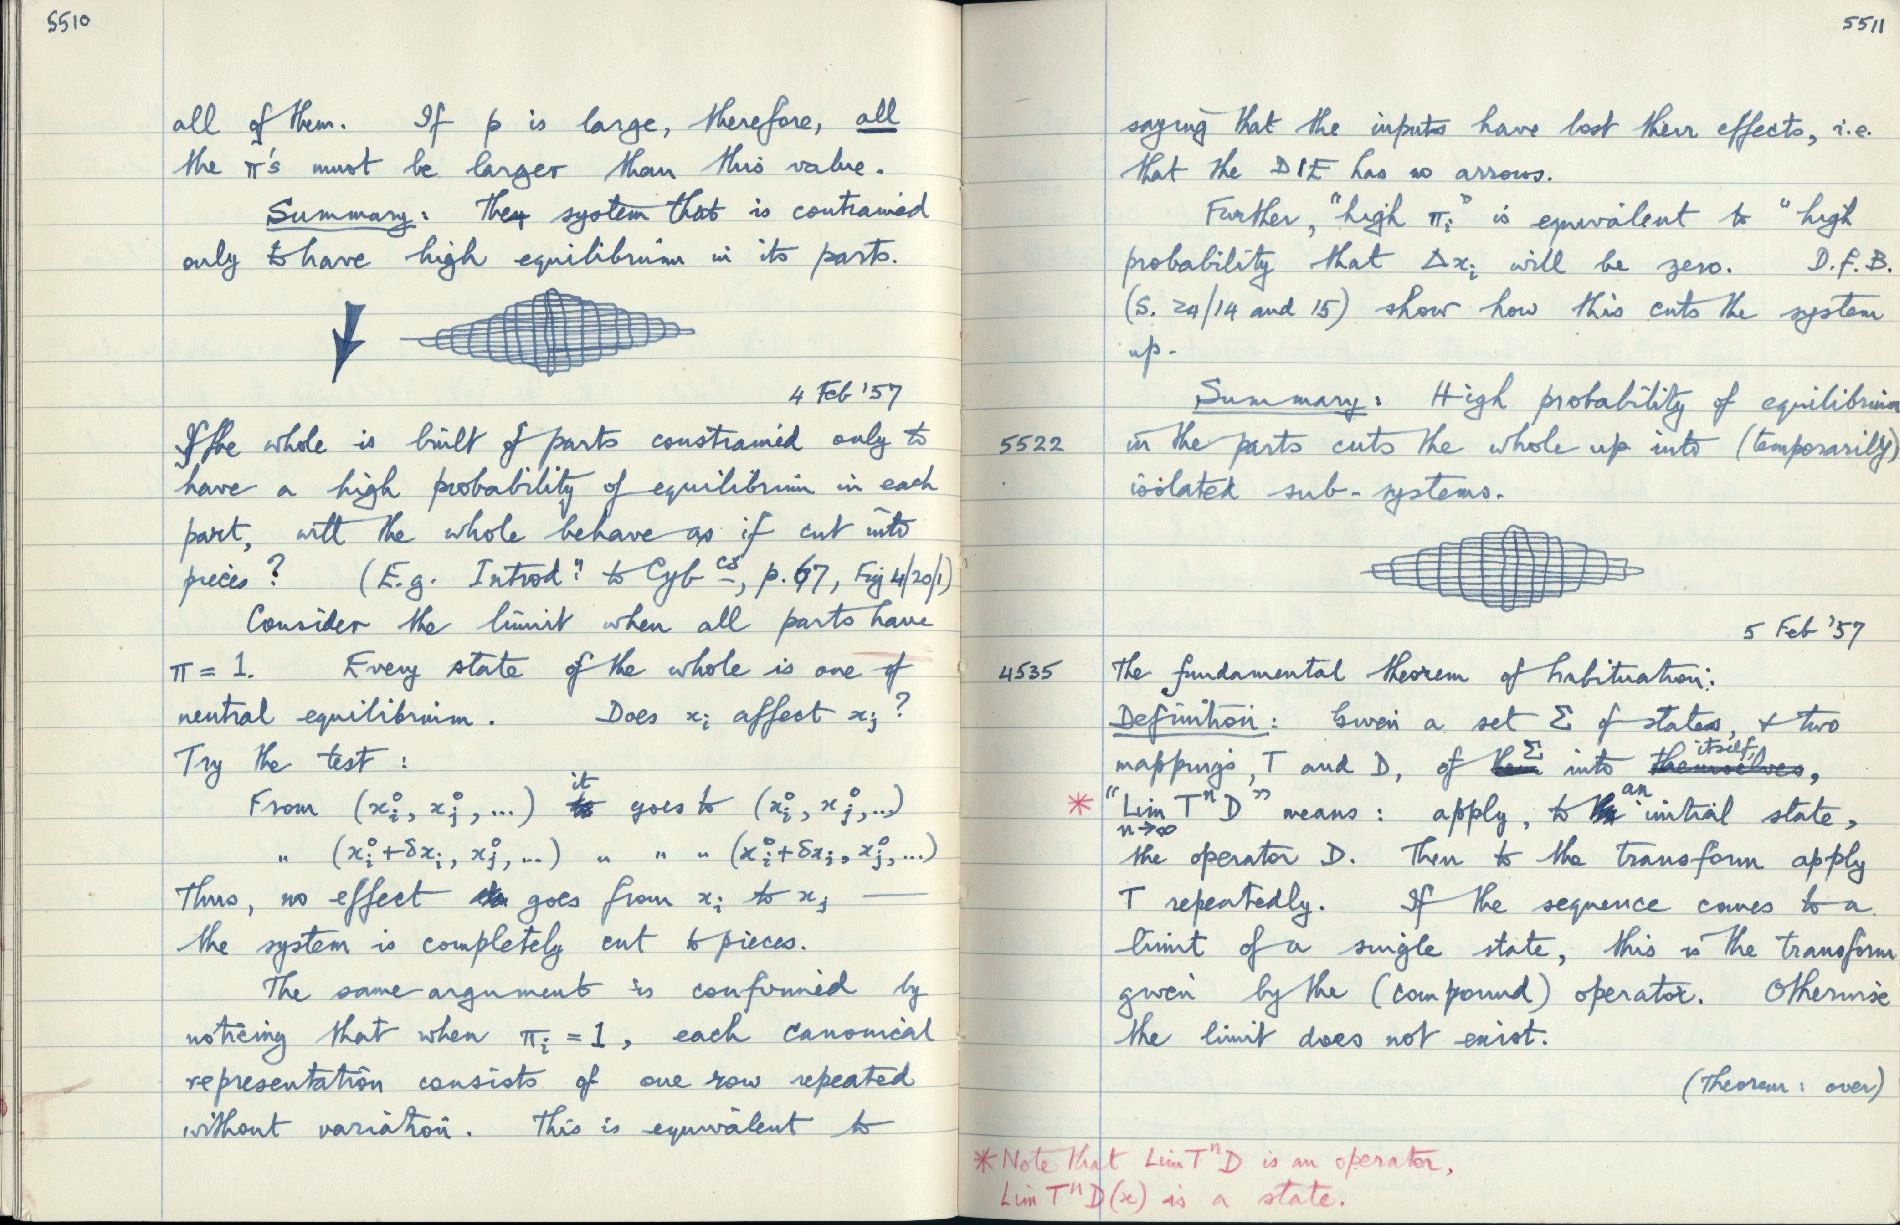 5510
all of them. If p is large, therefore, all
the π's must be larger than this value.
Summary: The system that is contrained
only to have high equilibrium in its parts.
4 Feb '57
If the whole is built of parts constrained only to
have a high probability of equilibrium in each
part, will the whole behave as if cut into
pieces? (E.g. Introdⁿ. to Cybcs, p. 67, Fig 4/20/1)
Consider the limit when all parts have
π = 1. Every state of the whole is one of
neutral equilibrium. Does xᵢ affect xⱼ?
Try the test:
From (xᵢ⁰, xⱼ⁰, ...) it goes to (xᵢ⁰, xⱼ⁰, ...)
" (xᵢ⁰+δxᵢ, xⱼ⁰, ...) " " " (xᵢ⁰+δxᵢ, xⱼ⁰, ...)
Thus, no effect goes from xᵢ to xⱼ —
the system is completely cut to pieces.
The same argument is confirmed by
noticing that when πᵢ = 1, each canonical
representation consists of one row repeated
without variation. This is equivalent to
5511
saying that the inputs have lost their effects, i.e.
that the DIE has no arrows.
Further, "high πᵢ" is equivalent to "high
probability that Δxᵢ will be zero. D.f.B.
(S. 24/14 and 15) show how this cuts the system
up.
Summary: High probability of equilibrium
5522 in the parts cuts the whole up into (temporarily)
isolated sub-systems.
5 Feb '57
4535 The fundamental theorem of habituation:
Definition: Given a set Σ of states, & two
mappings, T and D, of Σ into itself themselves,
* "Lim n→∞ TⁿD" means: apply, to an initial state,
the operator D. Then to the transform apply
T repeatedly. If the sequence comes to a
limit of a single state, this is the transform
given by the (compound) operator. Otherwise
the limit does not exist.
(Theorem: over)
* Note that Lim TⁿD is an operator,
Lim TⁿD(x) is a state.